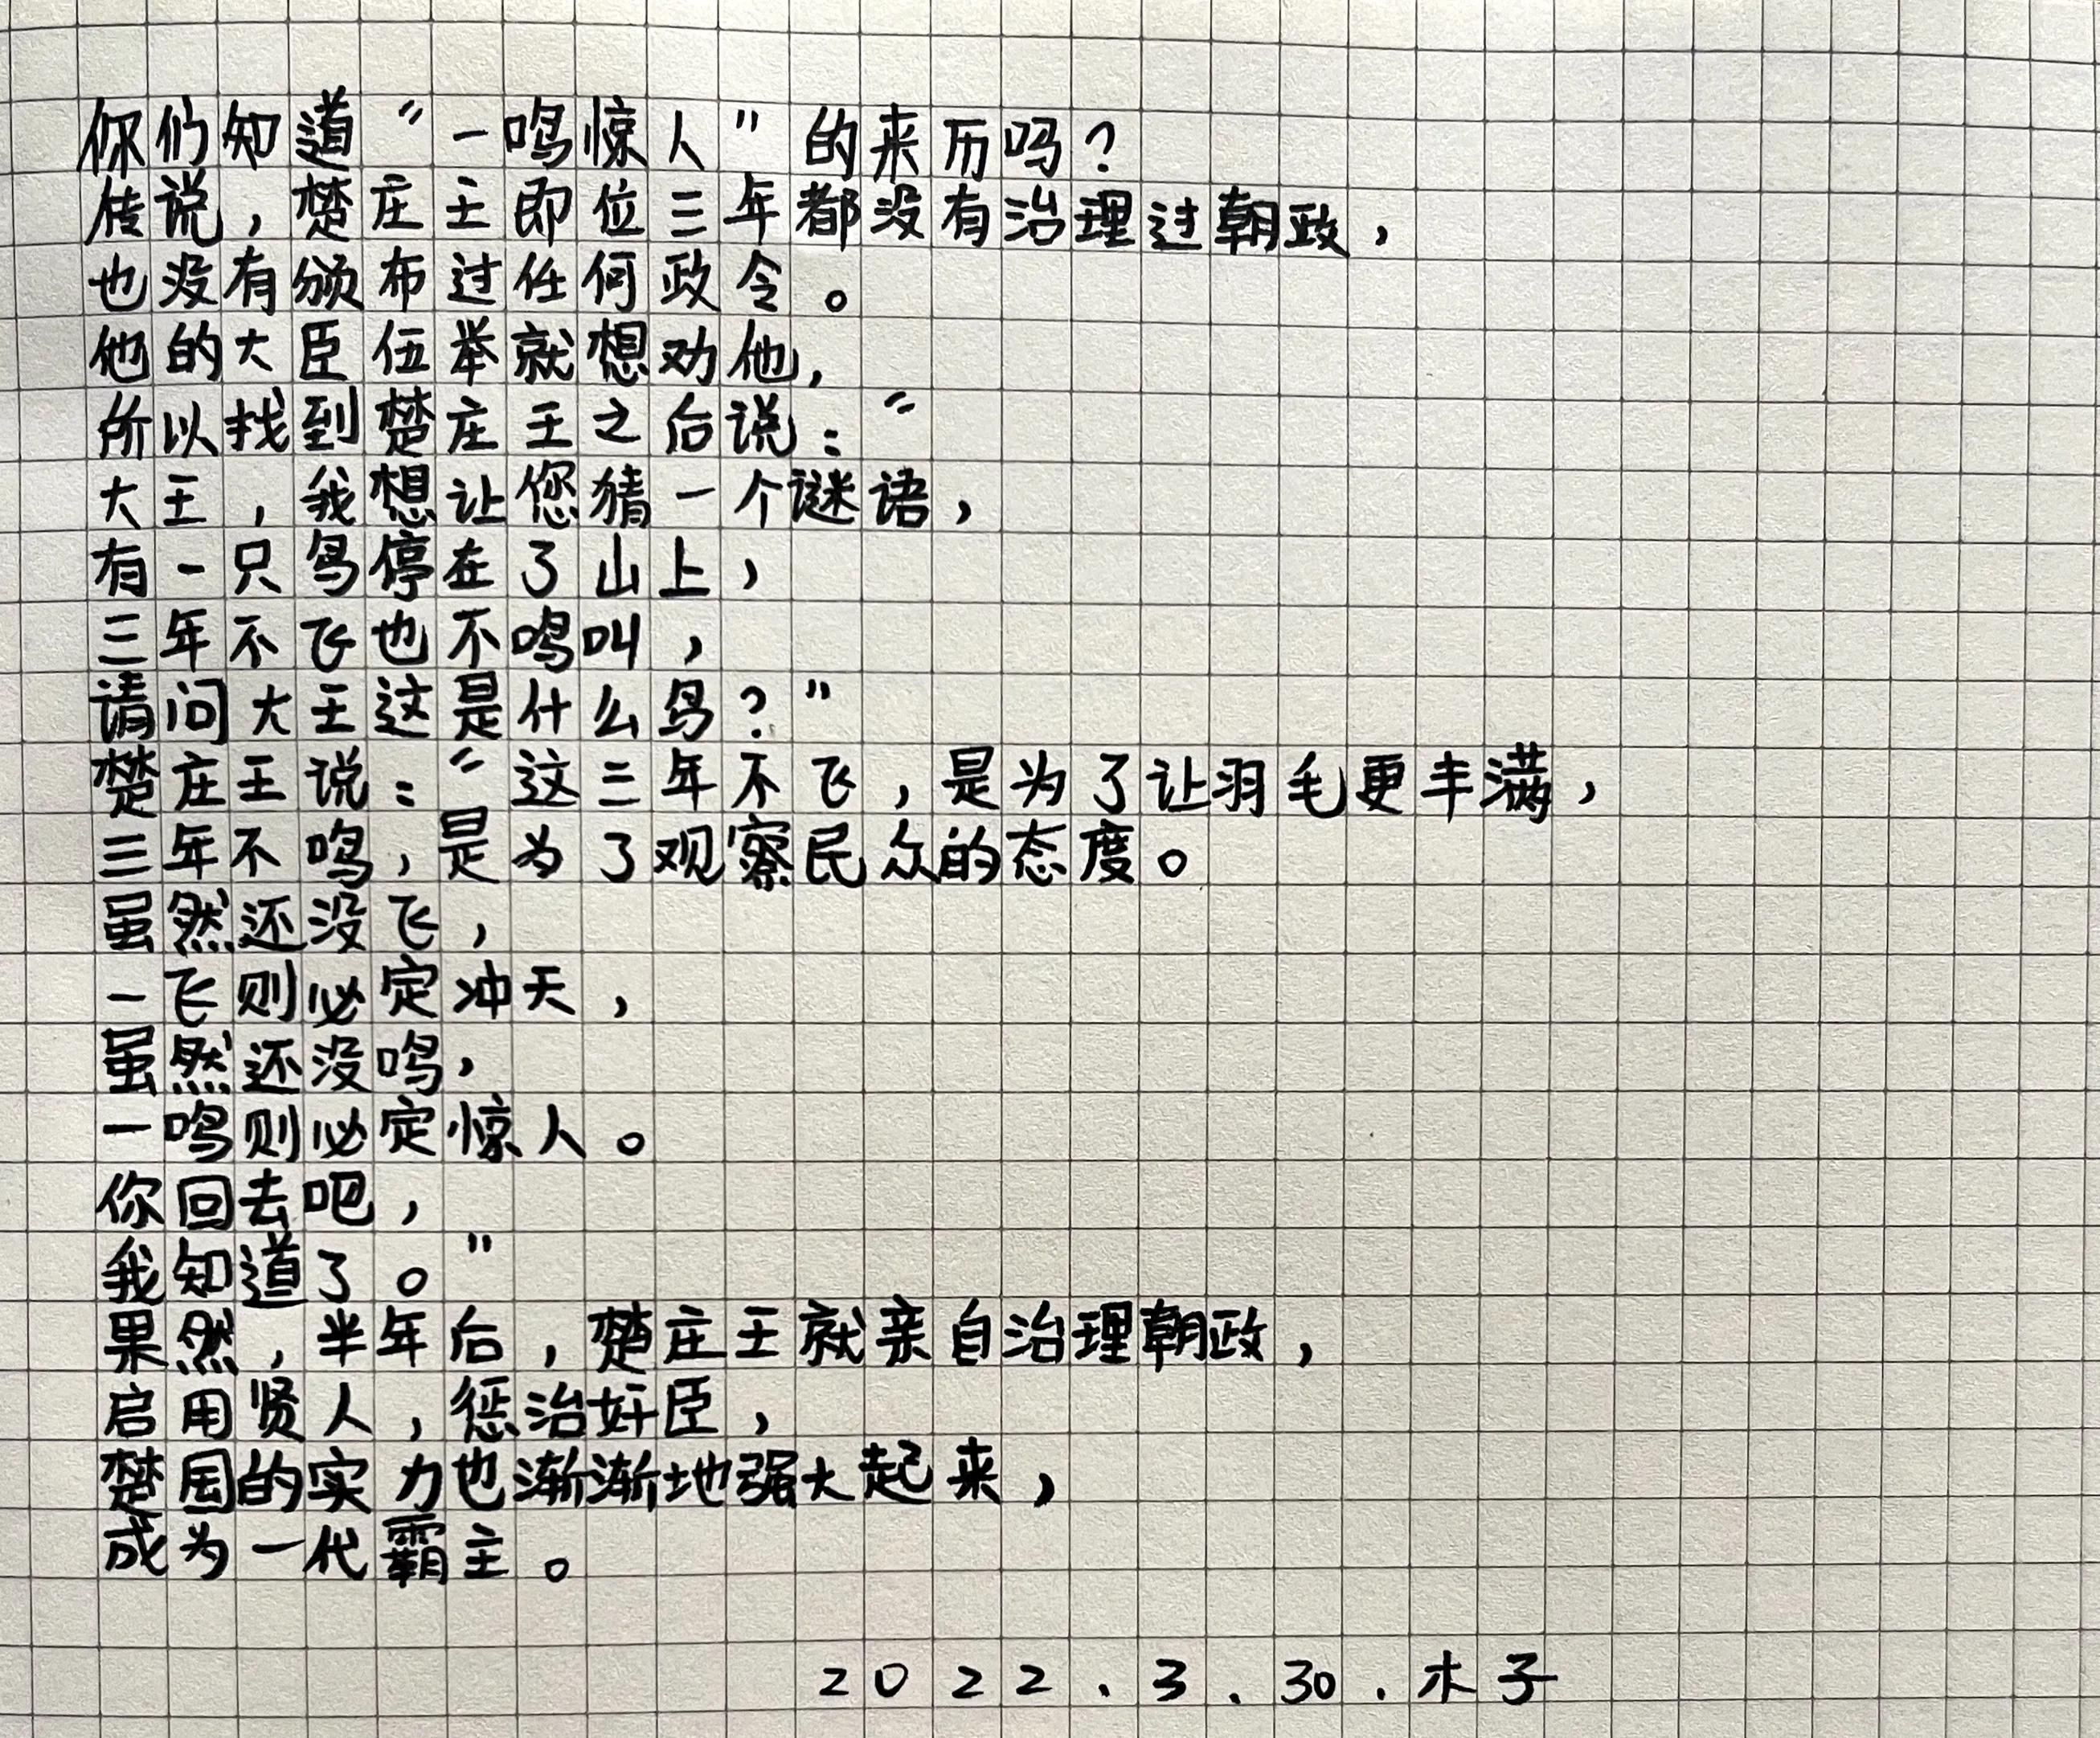 你们知道“一鸣惊人”的来历吗？
传说，楚庄王即位三年都没有治理过朝政，
也没有颁布过任何政令。
他的大臣伍举就想劝他，
所以找到楚庄王之后说：“
大王，我想让您猜一个谜语，
有一只鸟停在了山上，
三年不飞也不鸣叫，
请问大王这是什么鸟？”
楚庄王说：“这三年不飞，是为了让羽毛更丰满，
三年不鸣，是为了观察民众的态度。
虽然还没飞，
一飞则必定冲天，
虽然还没鸣，
一鸣则必定惊人。
你回去吧，
我知道了。”
果然，半年后，楚庄王就亲自治理朝政，
启用贤人，惩治奸臣，
楚国的实力也渐渐地强大起来，
成为一代霸主。
2022.3.30.木子